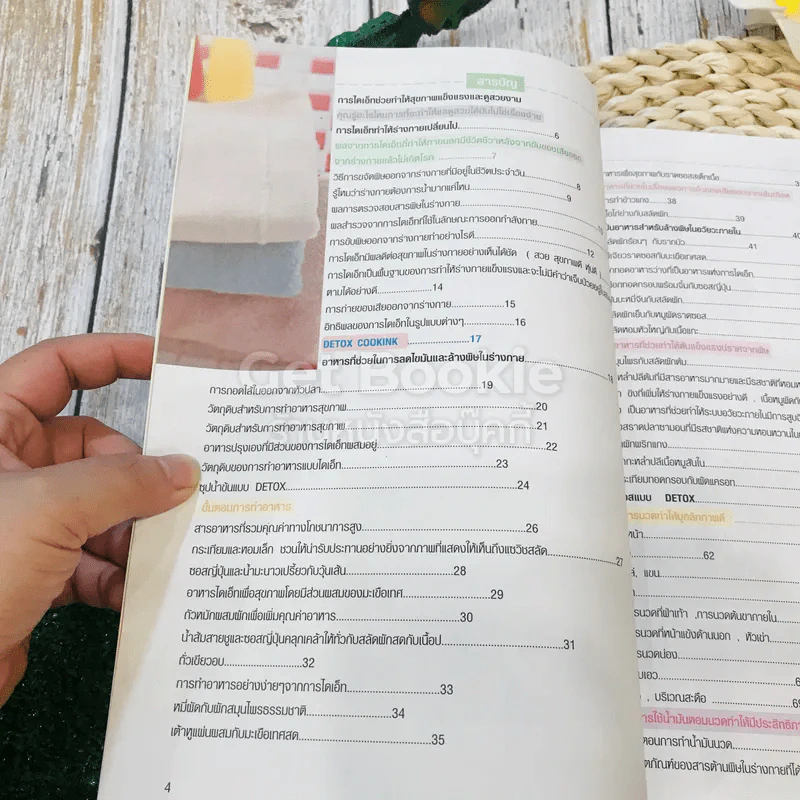 สารบัญ
การไดเอ็ทช่วยทำให้สุขภาพแข็งแรงและดูสวยงาม
การไดเอ็ททำให้ร่างกายเปลี่ยนไป...6
จากร่างกายแล้วไม่เกิดโรค...7
วิธีการขจัดพิษออกจากร่างกายที่มีอยู่ในชีวิตประจำวัน...8
รู้ไหมว่าร่างกายต้องการน้ำมากแค่ไหน...9
ผลการตรวจสอบสารพิษในร่างกาย
ผลสำรวจจากการไดเอ็ทที่ใช้ในลักษณะการออกกำลังกาย
การขับพิษออกจากร่างกายทำอย่างไรดี...12
การไดเอ็ทมีผลดีต่อสุขภาพในร่างกายอย่างเห็นได้ชัด ( สวย สุขภาพดี หุ่นดี )
การไดเอ็ทเป็นพื้นฐานของการทำให้ร่างกายแข็งแรงและจะไม่มีคำว่าเจ็บป่วย
ตามได้อย่างดี...14
การถ่ายของเสียออกจากร่างกาย...15
อิทธิพลของการไดเอ็ทในรูปแบบต่างๆ...16
DETOX COOKINK...17
อาหารที่ช่วยในการลดไขมันและล้างพิษในร่างกาย...18
การถอดไส้ในออกจากหัวปลา...19
วัตถุดิบสำหรับการทำอาหารสุขภาพ...20
วัตถุดิบสำหรับการทำอาหารสุขภาพ...21
อาหารปรุงเองที่มีส่วนของการไดเอ็ทผสมอยู่...22
วัตถุดิบของการทำอาหารแบบไดเอ็ท...23
ซุปน้ำข้นแบบ DETOX...24
ขั้นตอนการทำอาหาร
สารอาหารที่รวมคุณค่าทางโภชนาการสูง...26
กระเทียมและหอมเล็ก ชวนให้น่ารับประทานอย่างยิ่งจากภาพที่แสดงให้เห็นถึงแซวิชสลัด...27
ซอสญี่ปุ่นและน้ำมะนาวเปรี้ยวกับวุ้นเส้น...28
อาหารไดเอ็ทเพื่อสุขภาพโดยมีส่วนผสมของมะเขือเทศ...29
ถั่วหมักผสมผักเพื่อเพิ่มคุณค่าอาหาร...30
น้ำส้มสายชูและซอสญี่ปุ่นคลุกเคล้าให้ทั่วกับสลัดผักสดกับเนื้อป...31
ถั่วเขียวอบ...32
การทำอาหารอย่างง่ายๆจากการไดเอ็ท...33
หมี่ผัดกับผักสมุนไพรธรรมชาติ...34
เต้าหูแผ่นผสมกับมะเขือเทศสด...35
4
Get Bookie
ร้านหนังสือบุ๊คกี้
าหารเพื่อสุขภาพกับราดซอสสเต็กเนื้อ
ารทำข้าวแกง...38
ไอโก้ย่างกับสลัดผัก...39
ป็นอาหารสำหรับล้างพิษในอวัยวะภายใน...40
ลัดผักร้อนๆ กับราดมิว...41
เจียวราดซอสกับมะเขือเทศสด
ทอดอาหารว่างที่เป็นอาหารแห่งการไดเอ็ท
ทอดกรอบพร้อมจิ้มกับซอสญี่ปุ่น
มะหมี่จีนกับสลัดผัก
ลัดผักเย็นกับหมูผัดราดซอส
ลัดหอมหัวใหญ่กับเนื้อแกะ
าหารที่ช่วยทำให้ต้นแข็งแรงปราศจากพิษ
มุนไพรกับสลัดผักต้ม
หล่ำปลีต้มที่มีสารอาหารมากมายและมีรสชาติที่หอมห
ขิงที่เพิ่มให้ร่างกายแข็งแรงอย่างดี , เนื้อหมูผัดกั
เป็นอาหารที่ช่วยทำให้ระบบอวัยวะภายในมีการสูบฉี
ผักพริกแกง
กะหล่ำปลีเนื้อหมูสับใน
ระเทียมทอดกรอบกับผัดแครอท
วสแบบ DETOX
ารนวดทำให้บุคลิกภาพดี
หน้า
62
ล่, แขน
รนวดที่ฝ่าเท้า ,การนวดต้นขาภายใน
รนวดที่หน้าแข้งด้านนอก , หัวเข่า
รนวดน่อง
บเอว
, บริเวณสะดือ
ารใช้น้ำมันตอนนวดทำให้มีประสิทธิภา
ตอนการทำน้ำมันนวด
ตภัณฑ์ของสารต้านพิษในร่างกายที่ได้